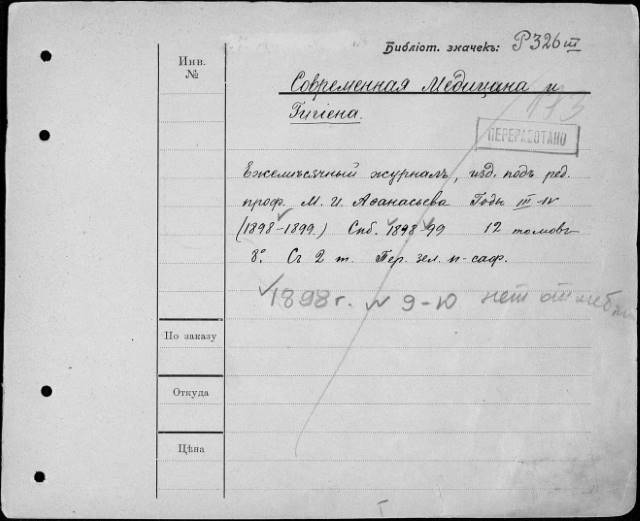 Библіот. значекъ: P326 III
Инв.
№
Современная Медицина и
Гигіена.
ПЕРЕРАБОТАНО
Ежемѣсячный журналъ, изд. подъ ред.
проф. М. И. Аѳанасьева Годы III-IV
(1898-1899.) Спб. 1898-99 12 томовъ
8°. Съ 2 т. Пер. зел. п-саф.
1898 г. № 9-10 нет
По заказу
Откуда
Цѣна